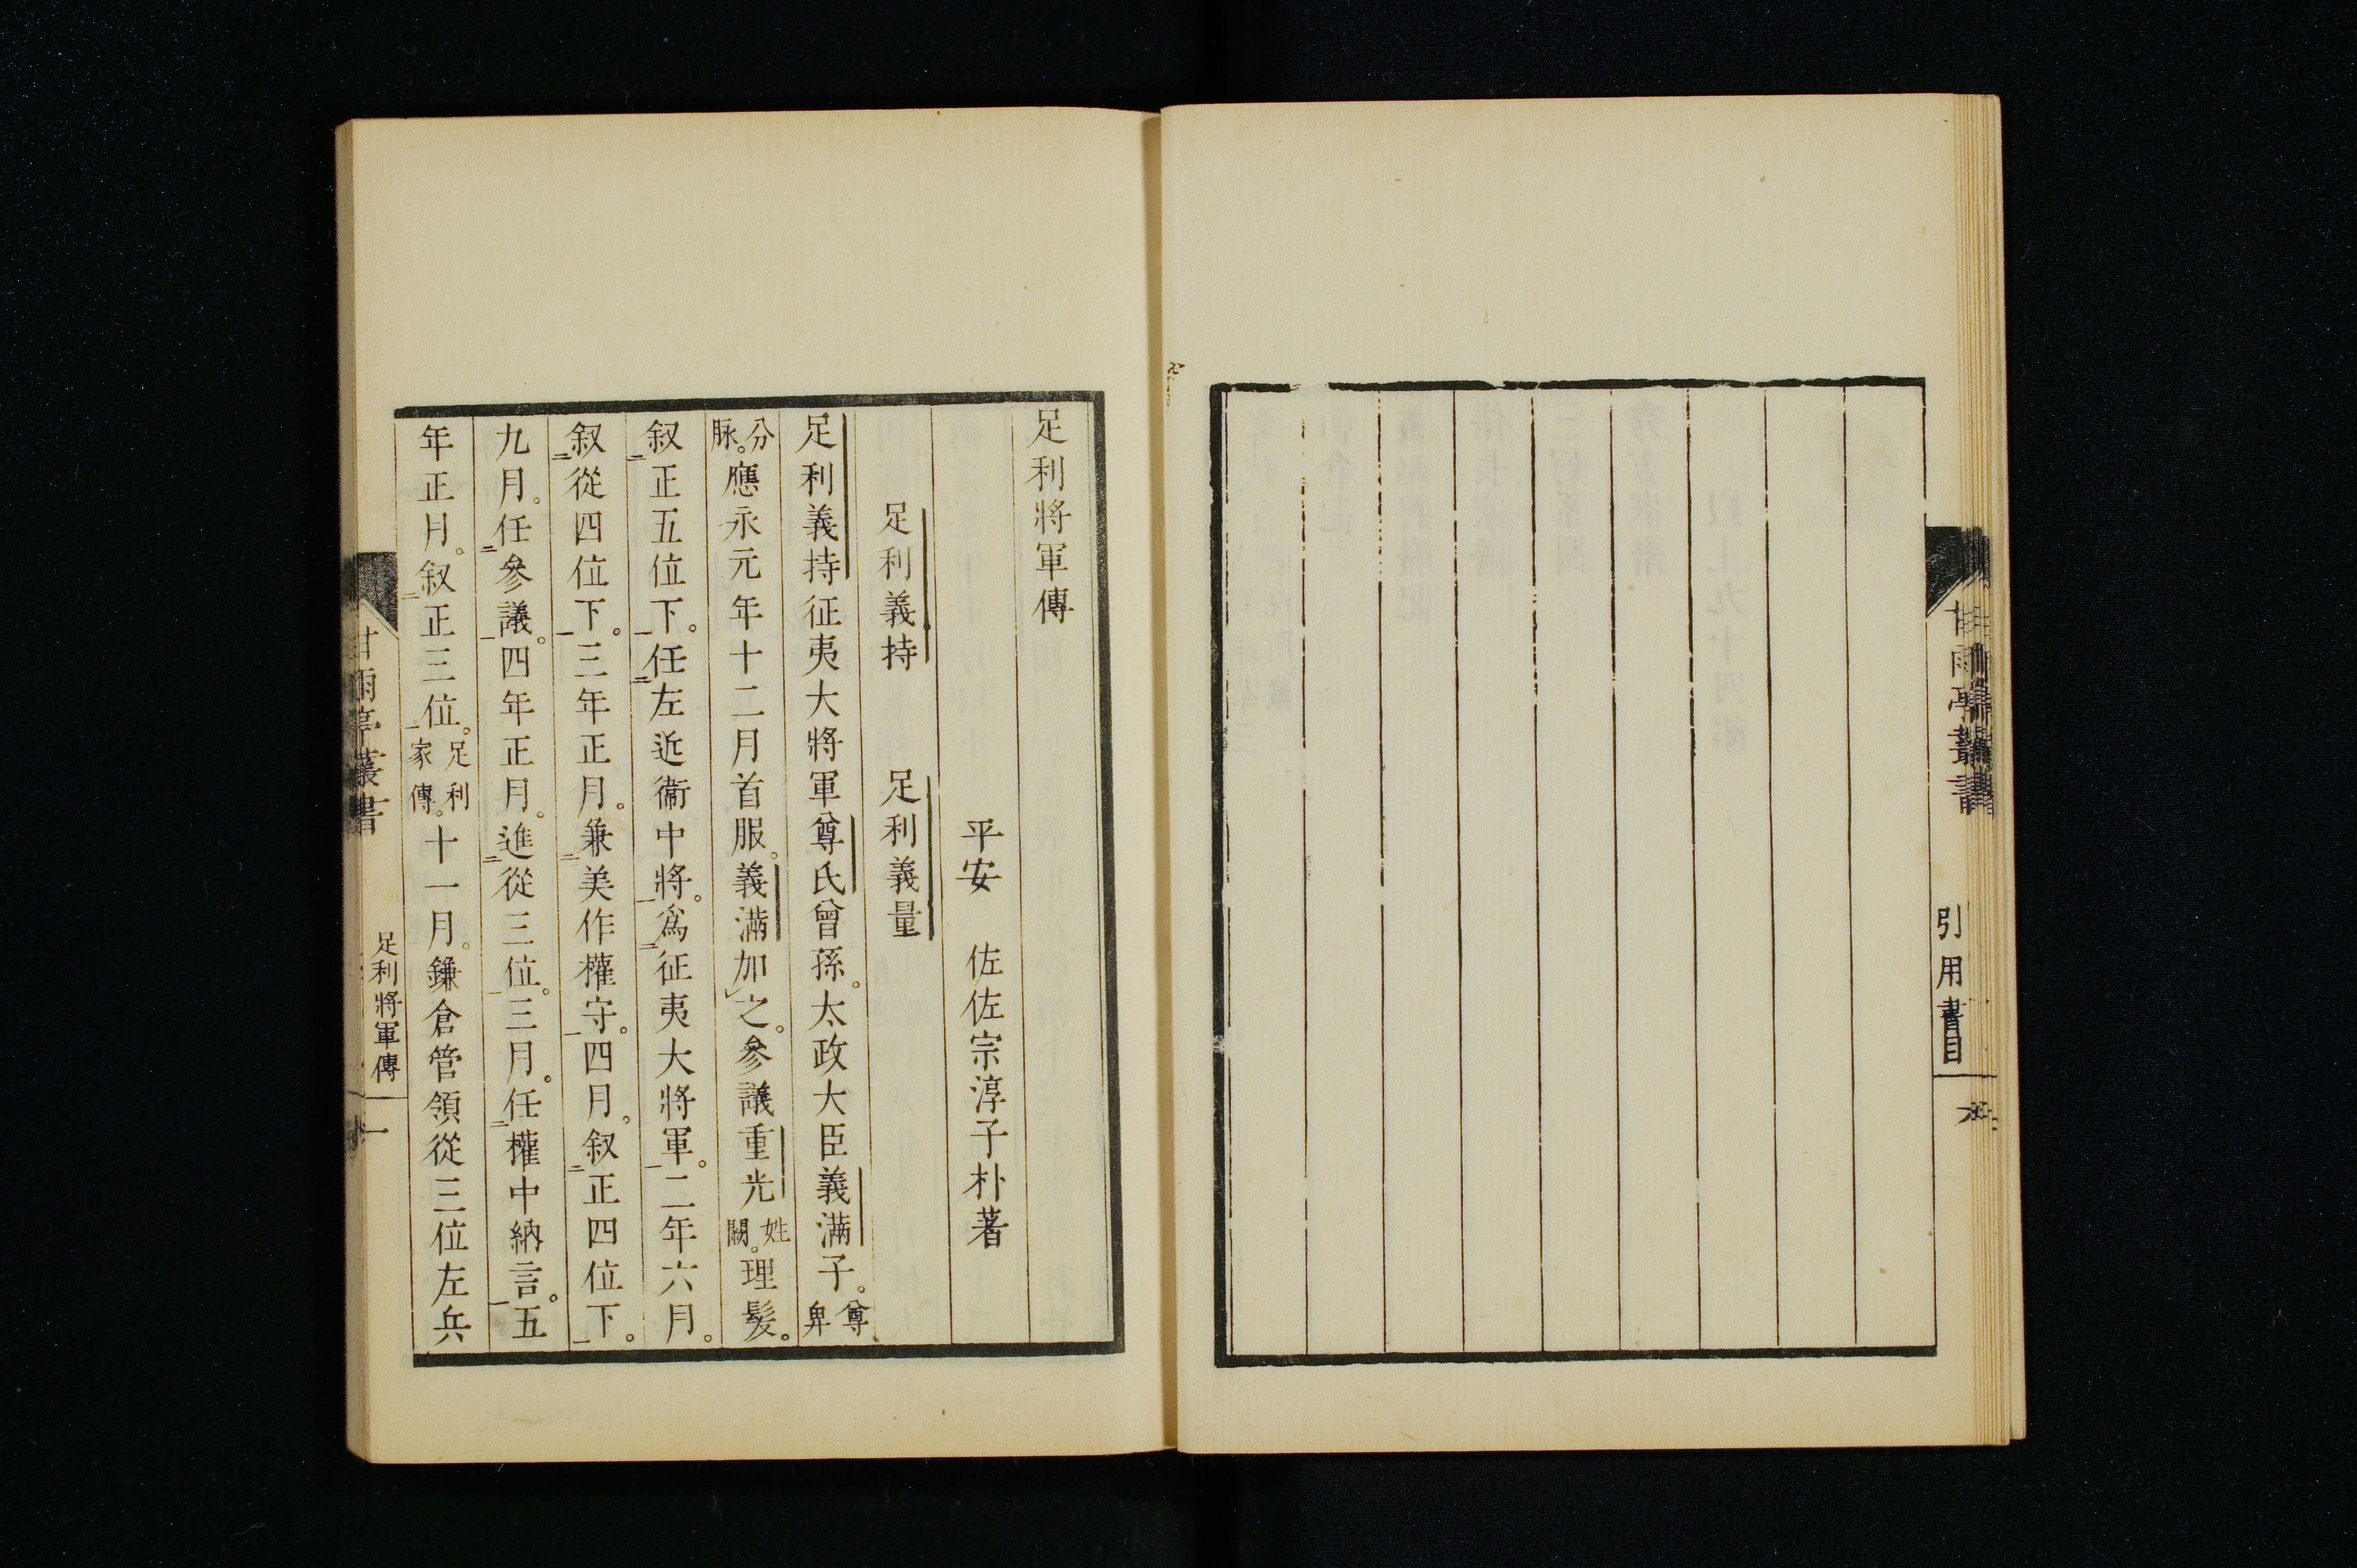 甘雨亭叢書
引用書目
足利將軍傳
平安 佐佐宗淳子朴著
足利義持 足利義量
足利義持征夷大將軍尊氏曾孫。太政大臣義滿子。尊卑
分脉。應永元年十二月首服。義滿加之。參議重光姓闕。理髮。
叙正五位下。任左近衞中將。爲征夷大將軍。二年六月。
叙從四位下。三年正月。兼美作權守。四月。叙正四位下。
九月。任參議。四年正月。進從三位。三月。任權中納言。五
年正月。叙正三位。足利家傳。十一月。鎌倉管領從三位左兵
甘雨亭叢書
足利將軍傳
一